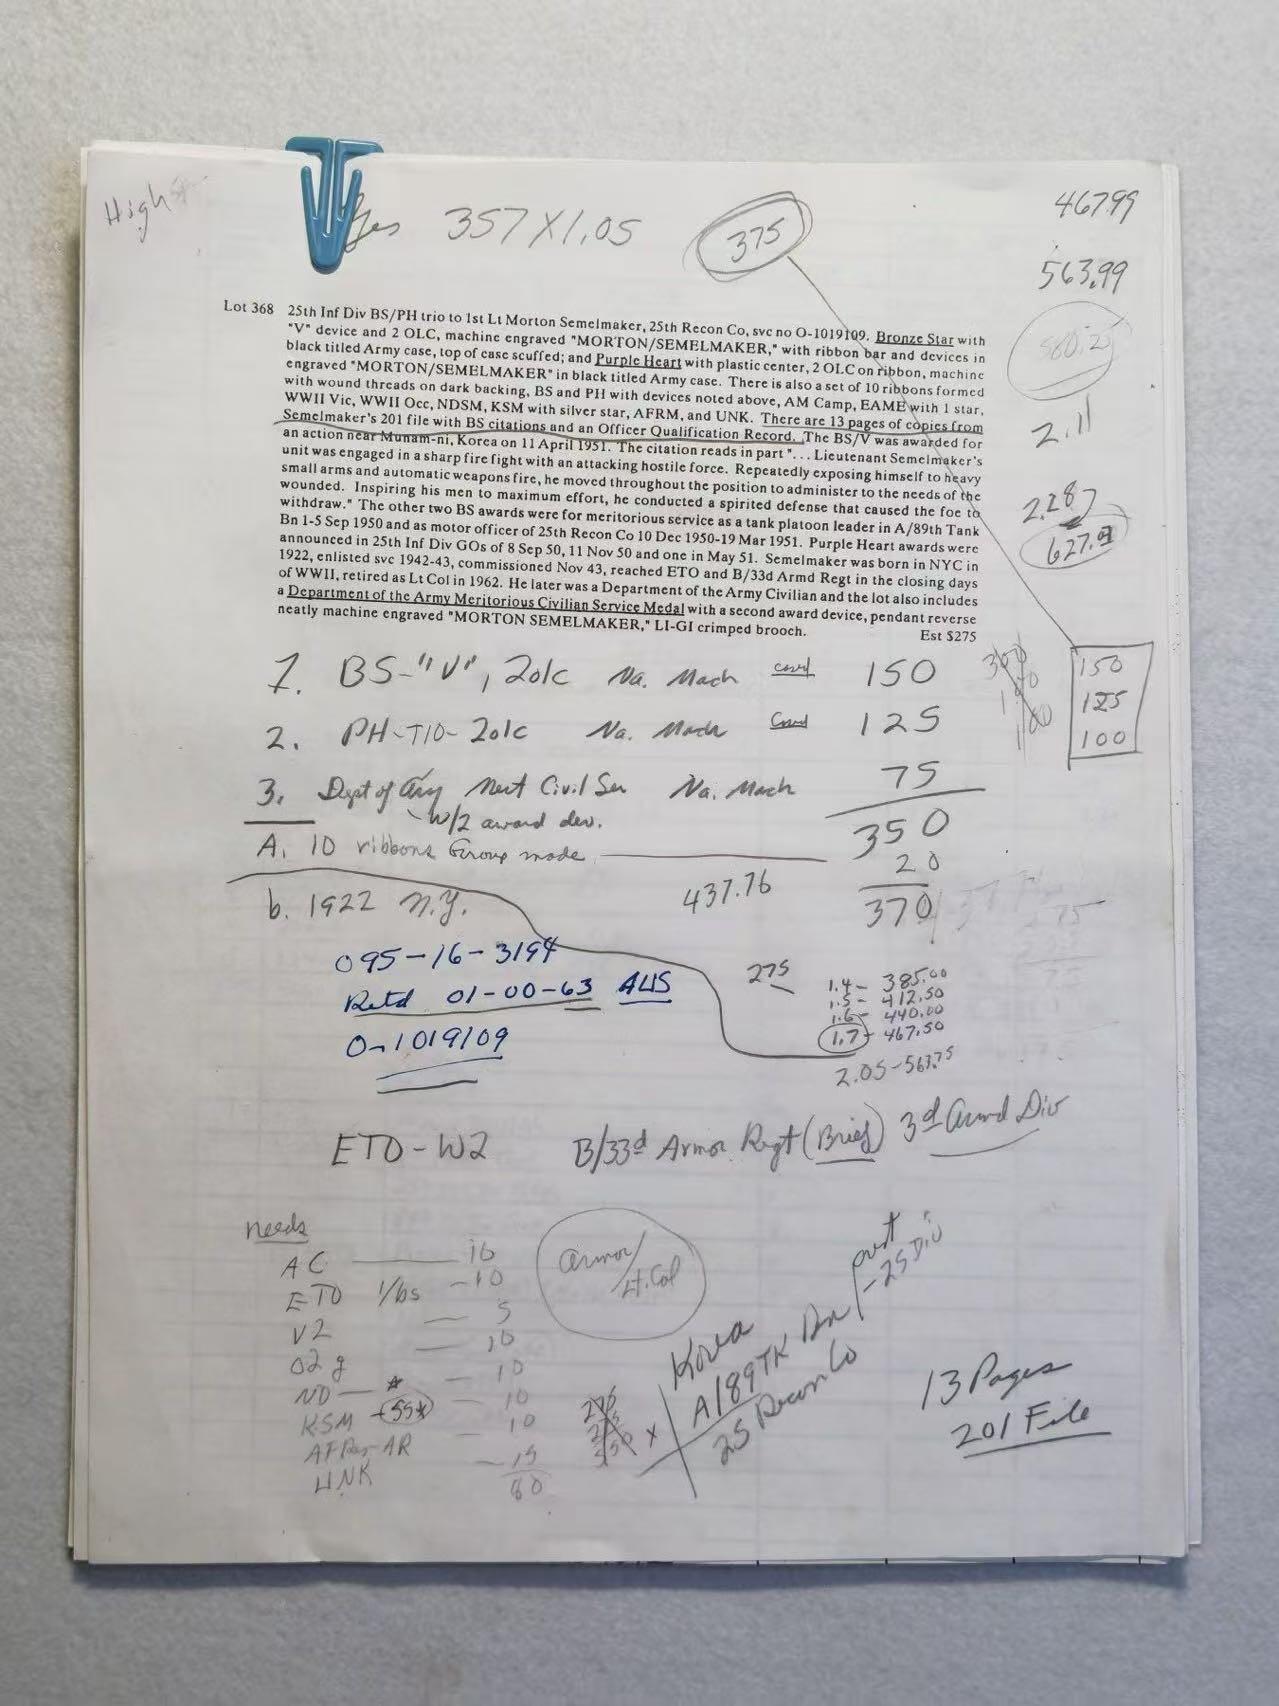 High
Yes 357 X 1.05
375
467.99
563.99
580.25
2.11
2.28
627.
Lot 368 25th Inf Div BS/PH trio to 1st Lt Morton Semelmaker, 25th Recon Co, svc no O-1019109. Bronze Star with
"V" device and 2 OLC, machine engraved "MORTON/SEMELMAKER," with ribbon bar and devices in
black titled Army case, top of case scuffed; and Purple Heart with plastic center, 2 OLC on ribbon, machine
engraved "MORTON/SEMELMAKER" in black titled Army case. There is also a set of 10 ribbons formed
with wound threads on dark backing, BS and PH with devices noted above, AM Camp, EAME with 1 star,
WWII Vic, WWII Occ, NDSM, KSM with silver star, AFRM, and UNK. There are 13 pages of copies from
Semelmaker's 201 file with BS citations and an Officer Qualification Record. The BS/V was awarded for
an action near Munam-ni, Korea on 11 April 1951. The citation reads in part "... Lieutenant Semelmaker's
unit was engaged in a sharp fire fight with an attacking hostile force. Repeatedly exposing himself to heavy
small arms and automatic weapons fire, he moved throughout the position to administer to the needs of the
wounded. Inspiring his men to maximum effort, he conducted a spirited defense that caused the foe to
withdraw." The other two BS awards were for meritorious service as a tank platoon leader in A/89th Tank
Bn 1-5 Sep 1950 and as motor officer of 25th Recon Co 10 Dec 1950-19 Mar 1951. Purple Heart awards were
announced in 25th Inf Div GOs of 8 Sep 50, 11 Nov 50 and one in May 51. Semelmaker was born in NYC in
1922, enlisted svc 1942-43, commissioned Nov 43, reached ETO and B/33d Armd Regt in the closing days
of WWII, retired as Lt Col in 1962. He later was a Department of the Army Civilian and the lot also includes
a Department of the Army Meritorious Civilian Service Medal with a second award device, pendant reverse
neatly machine engraved "MORTON SEMELMAKER," LI-GI crimped brooch. Est $275
1. BS-"V", 2olc Na. Mach cased 150
2. PH-T10-2olc Na. Mach Cased 125
3. Dept of Army Merit Civil Ser Na. Mach 75
W/2 award dev.
150
125
100
350
A. 10 ribbons Group made 20
370
b. 1922 N.Y. 437.76
095-16-3194
Retd 01-00-63 AUS
O-1019109
275
1.4 - 385.00
1.5 - 412.50
1.6 - 440.00
1.7 - 467.50
2.05 - 563.75
ETO-W2 B/33d Armor Regt (Brief) 3d Armd Div
needs
AC 10
ETO 1/bs - 10
V2 5
O2 g 10
ND 10
KSM - 10
AFRes-AR 10
UNK - 15
80
Armor/
Lt. Col
Korea
A/89 TK Bn
25 Recon Co
part
-25 Div
13 Pages
201 File